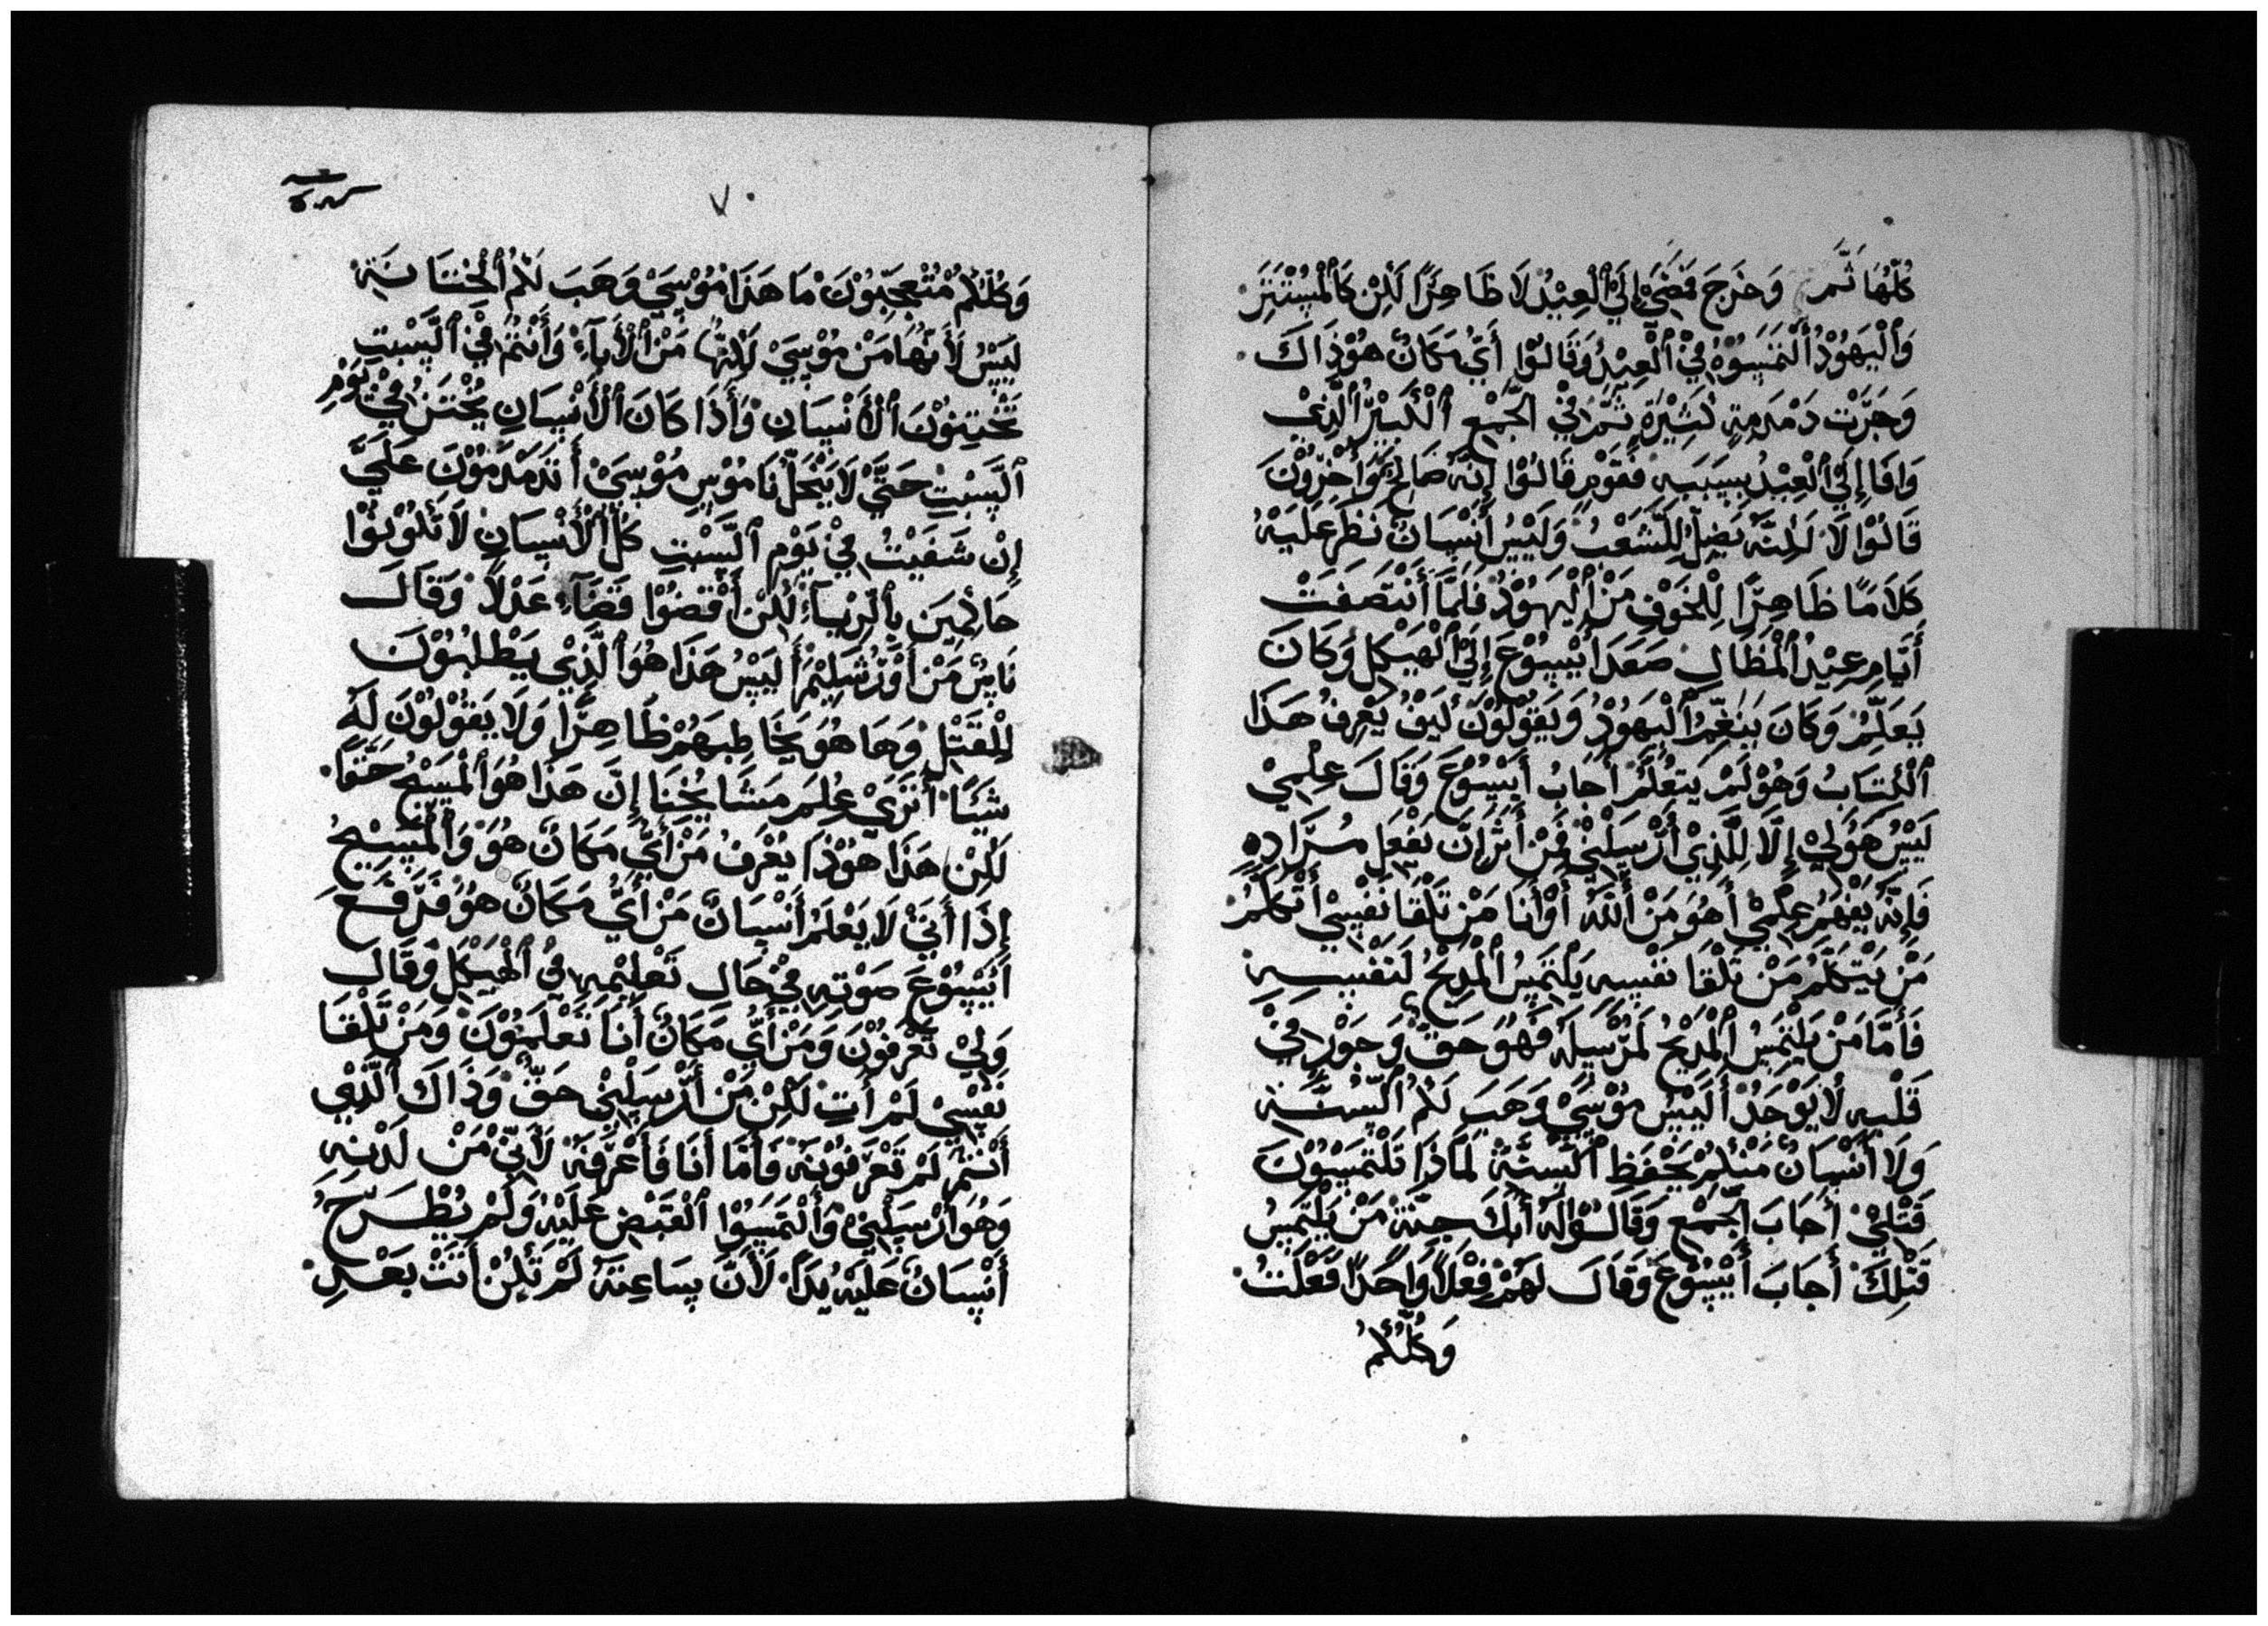 كُلُّهَا ثُمَّ وَخَرَجَ فَمَضَيْ إِلَيْ ٱلْعِيْدُ لَا ظَاهِرًا لَكِنْ كَٱلْمُسْتَتِرَ
وَٱلْيَهُوْدُ أَلْتَمَسُوْهُ فِيْ ٱلْعِيْدُ وَقَالُوْا أَيُّ مَكَانٌ هُوْذَاكَ
وَجَرَتْ دَمْدَمِةٍ كَثِيْرَةٍ ثَمَّ فِيْ الْجَّمْعِ ٱلْكَبِيْرُ ٱلَّذِيْ
وَافَا إِلَيْ ٱلْعِيْدُ بِسَبَبِهِ فَقَوْمٍ قَالُوْا إِنَّهُ صَالِحٌ وَأَخَرُوْنَ
قَالُوْا لَا لَكِنَّهُ يُضِلُّ لِلشَّعْبُ وَلَيْسُ أَنْسَانٌ نَظَرَ عَلَيْهُ
كَلَامًا ظَاهِرًا لِلْخَوْفِ مَنْ ٱلْيَهُوْدُ فَلَمَّا أَنْتَصَفَتْ
أَيَّامِ عِيْدُ ٱلْمَظَالِ صَعَدَ أَيْسُوْعَ إِلَيْ ٱلْهَيْكِلُ وَكَانَ
يَعَلِّمُ وَكَانَ يَتَغَيَّرُ ٱلْيَهُوْدُ وَيَقُوْلُوْنَ كَيْفُ يَعْرِفُ هَذَا
ٱلْكِتَابُ وَهُوْ لَمْ يَتَعَلَّمْ أَجَابَ أَيْسُوْعَ وَقَالَ عِلْمِيْ
لَيْسُ هَوَلِيْ إِلَّا لِلَّذِيْ أَرْسَلْنِيْ فَمَنْ أَثَرَ إِنَّ يَفْعَلِ مُرَادِهِ
فَإِنَّهُ يَفْهَمُ عِلْمِيْ أَهُوَ مَنْ أَللّٰهُ أَوْ أَنَا مَنْ تَلْقَا نَفْسِيْ أَتْكَلَّمُ
مَنْ يَتَكَلَّمُ مَنْ تَلْقَا نَفْسِهِ يَلْتَمِسُ ٱلْمَدِيْحُ لَنَفْسِهِ
فَأَمَّا مَنْ يَلْتَمِسُ ٱلْمَدِيْحُ لَمُرْسِلَهُ فَهُوَ حَقٌّ وَجَوْرٌ فِيْ
قَلْبِهِ لَا يَوْجَدُ أَلَيْسُ مُوْسَيْ وَهَبَ لَكُمُ ٱلسُّنَّةِ
وَلَا أَنْسَانٌ مَنْكُمْ يَحْفَظِ ٱلسُّنَّةُ لَمَاذَا تَلْتَمَسُوْنَ
قَتْلِيْ أَجَابَ الْجَّمْعِ وَقَالُوْا لَهُ أَبَكَ جِنَّةُ مَنْ يَلْتَمِسُ
قَتْلِكَ أَجَابَ أَيْسُوْعَ وَقَالَ لَهُمْ فِعْلًا وَاحَدًا فَعَلْتُ
وَكُلُّكُمُ
٧٠
وَكُلُّكُمُ مُتْعَجِّبُوْنَ مَا هَذَا مُوْسَيْ وَهَبَ لَكُمُ ٱلْخْتَانَةِ
لَيْسُ لَأَنَّهَا مَنْ مُوْسَيْ لَكِنَّهَا مَنْ ٱلْأَبَآءِ وَأَنْتُمُ فِيْ ٱلسَّبْتِ
تَخْتِنُوْنَ ٱلْأَنْسَانِ وَأَذَا كَانَ ٱلْأَنْسَانِ يُخْتَنُ فِيْ يَوْمِ
ٱلسَّبْتِ حَتَّيْ لَا يَنْحَلُّ نَامُوْسِ مُوْسَيْ أَتَدَمْدَمُوْنَ عَلَيَّ
إِنْ شَفَيْتُ فِيْ يَوْمِ ٱلسَّبْتِ كُلُّ ٱلْأَنْسَانِ لَا تَكُوْنُوْا
حَاكِمِيَن بِٱلرِّيَآءِ لَكِنْ أَقْضُوْا قَضَآءِ عَدْلًا وَقَالَ
نَاسٌ مَنْ أَوْرُشَلِيْمُ أَلَيْسُ هَذَا هُوَ ٱلَّذِيْ يَطْلُبُوْنَ
لِلْقَتْلِ وَهَا هُوَ يَخَاطِبَهُمْ ظَاهِرًا وَلَا يَقُوْلُوْنَ لَهُ
شَيًّا أَتَرَيْ عُلِمَ مَشَايُخُنَا إِنَّ هَذَا هُوَ ٱلْمَسِيْحُ حَقًّا
لَكِنْ هَذَا هُوْذَا يُعْرَفُ مَنْ أَيُّ مَكَانٌ هُوَ وَٱلْمَسِيْحُ
إِذَا أَتَيْ لَا يَعْلَمُ أَنْسَانٌ مَنْ أَيُّ مَكَانٌ هُوَ فَرَفَعَ
أَيْسُوْعَ صَوْتِهِ فِيْ حَالِ تَعْلِيْمِهِ فِيْ ٱلْهَيْكِلُ وَقَالَ
وَلِيْ تَعْرِفُوْنَ وَمَنْ أَيُّ مَكَانٌ أَنَا تَعْلَمُوْنَ وَمَنْ تَلْقَا
نَفْسِيْ لَمْ أَتِ لَكِنْ مَنْ أَرْسَلْنِيْ حَقٌّ وَذَاكَ ٱلَّذِيْ
أَنْتُمْ لَمْ تَعْرَفُوْنَهُ فَأَمَّا أَنَا فَأَعْرَّفَهُ لَأَنِّيْ مَنْ لَدْنِهِ
وَهُوَ أَرْسَلْنِيْ وَأَلْتَمَسُوْا ٱلْقَبْضِ عَلَيْهُ وَلَمْ يُطْرَحُ
أَنْسَانٌ عَلَيْهُ يَدًا لَأَنَّ سَاعِتَهُ لَمْ تَكِنْ أَتَتْ بَعْدِ